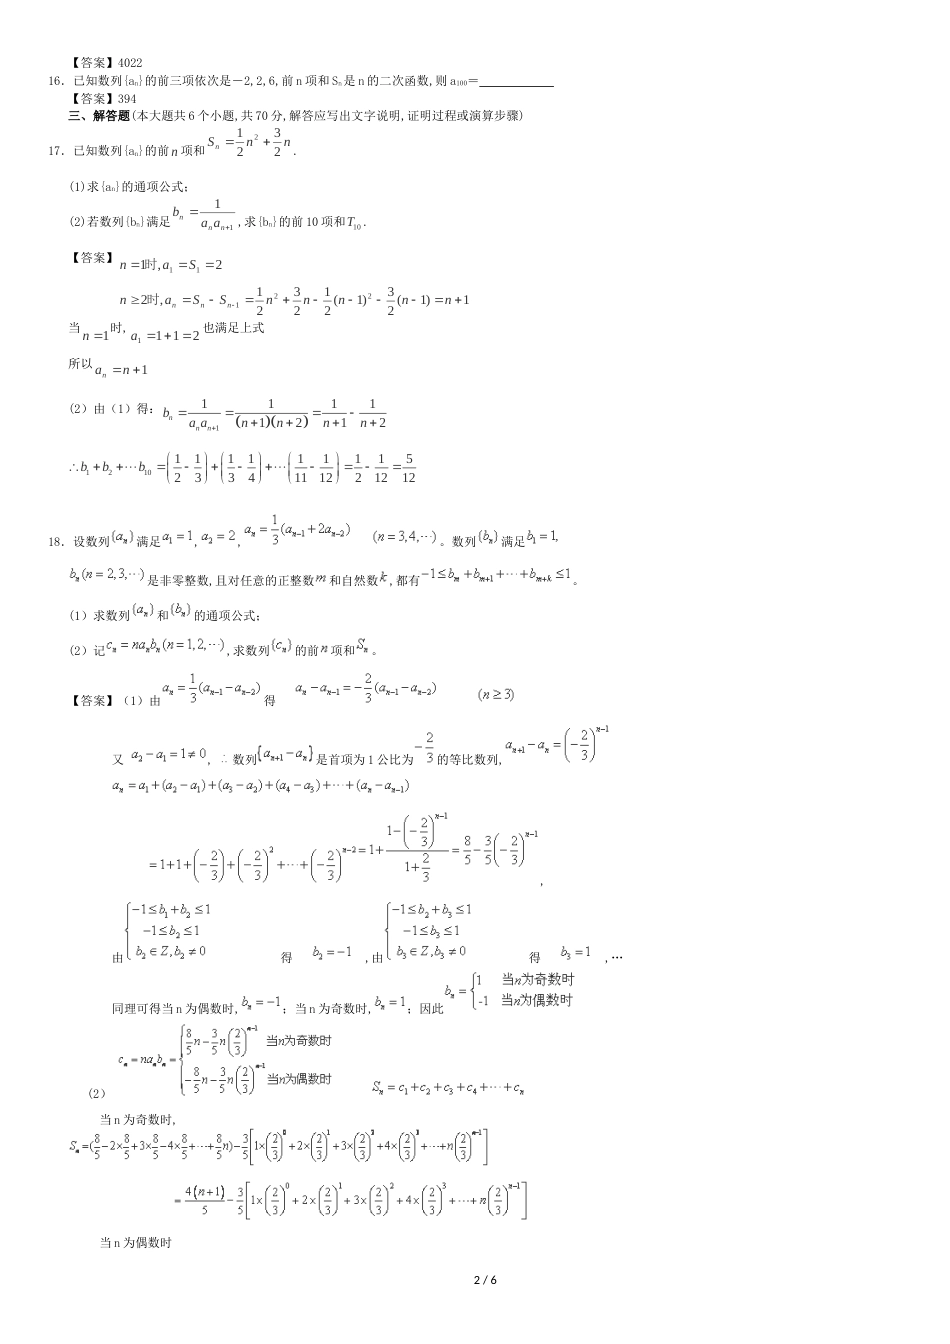 【答案】4022
16．已知数列{aₙ}的前三项依次是－2,2,6,前n项和Sₙ是n的二次函数,则a₁₀₀＝____________
【答案】394
三、解答题(本大题共6个小题,共70分,解答应写出文字说明,证明过程或演算步骤)
17．已知数列{aₙ}的前n项和 Sₙ = 1/2 n² + 3/2 n .
(1)求{aₙ}的通项公式;
(2)若数列{bₙ}满足 bₙ = 1/(aₙaₙ₊₁) ,求{bₙ}的前10项和T₁₀.
【答案】 n=1时,a₁ = S₁ = 2
n ≥ 2时,aₙ = Sₙ − Sₙ₋₁ = 1/2 n² + 3/2 n − 1/2 (n−1)² − 3/2 (n−1) = n+1
当 n=1 时, a₁ = 1+1 = 2 也满足上式
所以 aₙ = n+1
(2）由（1）得: bₙ = 1/(aₙaₙ₊₁) = 1/((n+1)(n+2)) = 1/(n+1) − 1/(n+2)
∴b₁ + b₂ + ⋯b₁₀ = (1/2 − 1/3) + (1/3 − 1/4) + ⋯(1/11 − 1/12) = 1/2 − 1/12 = 5/12
18．设数列{aₙ}满足a₁=1, a₂=2, aₙ = 1/3 (aₙ₋₁ + 2aₙ₋₂) (n=3,4,⋯)。数列{bₙ}满足b₁=1,
bₙ(n=2,3,⋯)是非零整数,且对任意的正整数m和自然数k,都有−1≤bₘ+bₘ₊₁+⋯+bₘ₊ₖ≤1。
(1）求数列{aₙ}和{bₙ}的通项公式;
(2）记cₙ=naₙbₙ(n=1,2,⋯),求数列{cₙ}的前n项和Sₙ。
【答案】（1）由 aₙ = 1/3 (aₙ₋₁ − aₙ₋₂) 得 aₙ − aₙ₋₁ = −2/3 (aₙ₋₁ − aₙ₋₂) (n≥3)
又 a₂ − a₁ = 1 ≠ 0, ∴数列{aₙ₊₁ − aₙ}是首项为1公比为 −2/3 的等比数列, aₙ₊₁ − aₙ = (−2/3)ⁿ⁻¹
aₙ = a₁ + (a₂ − a₁) + (a₃ − a₂) + (a₄ − a₃) + ⋯ + (aₙ − aₙ₋₁)
= 1+1+(−2/3)+(−2/3)²+⋯+(−2/3)ⁿ⁻² = 1+ (1−(−2/3)ⁿ⁻¹)/(1+2/3) = 8/5 − 3/5 (−2/3)ⁿ⁻¹ ,
由 { −1≤b₁+b₂≤1 −1≤b₂≤1 b₂∈Z,b₂≠0 得 b₂=−1 ,由 { −1≤b₂+b₃≤1 −1≤b₃≤1 b₃∈Z,b₃≠0 得 b₃=1 ,…
同理可得当n为偶数时,bₙ=−1; 当n为奇数时,bₙ=1; 因此 bₙ = { 1 当n为奇数时 -1 当n为偶数时
(2） cₙ = naₙbₙ = { 8/5 n − 3/5 n(2/3)ⁿ⁻¹ 当n为奇数时 −8/5 n − 3/5 n(2/3)ⁿ⁻¹ 当n为偶数时 Sₙ = c₁+c₂+c₃+c₄+⋯+cₙ
当n为奇数时,
Sₙ=(8/5−2×8/5+3×8/5−4×8/5+⋯+8/5 n)−3/5[1×(2/3)⁰+2×(2/3)¹+3×(2/3)²+4×(2/3)³+⋯+n(2/3)ⁿ⁻¹]
= 4(n+1)/5 − 3/5[1×(2/3)⁰+2×(2/3)¹+3×(2/3)²+4×(2/3)³+⋯+n(2/3)ⁿ⁻¹]
当n为偶数时
2 / 6